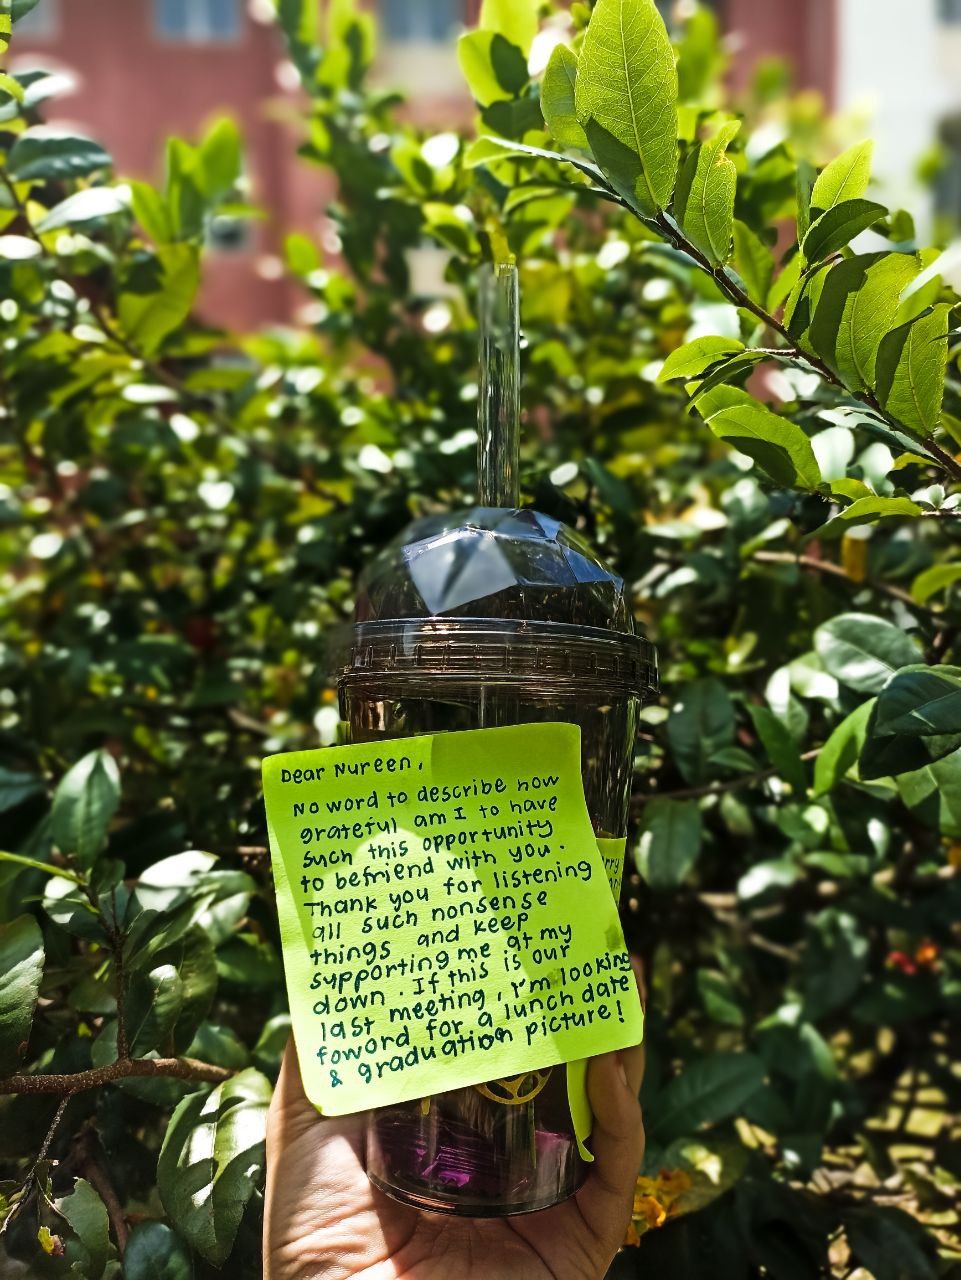 Dear Nureen,
No word to describe how
grateful am I to have
such this opportunity
to befriend with you.
Thank you for listening
all such nonsense
things and keep
supporting me at my
down. If this is our
last meeting, I'm looking
foword for a lunch date
& graduation picture!